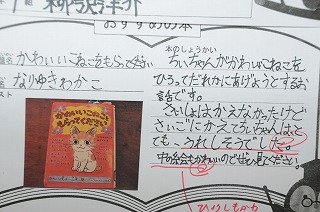 組
おすすめの本
かわいいこねこをもらってください
なりゆきわかこ
かわいいこねこを
もらってください
本のしょうかい
ちいちゃんがかわいいこねこを
ひろってだれかにあげようとするお
話です。
さいしょはかえなかったけど
さいごにかえてちいちゃんはと
ても、うれしそうでした。
中の絵もかわいいのでぜひ見てください。